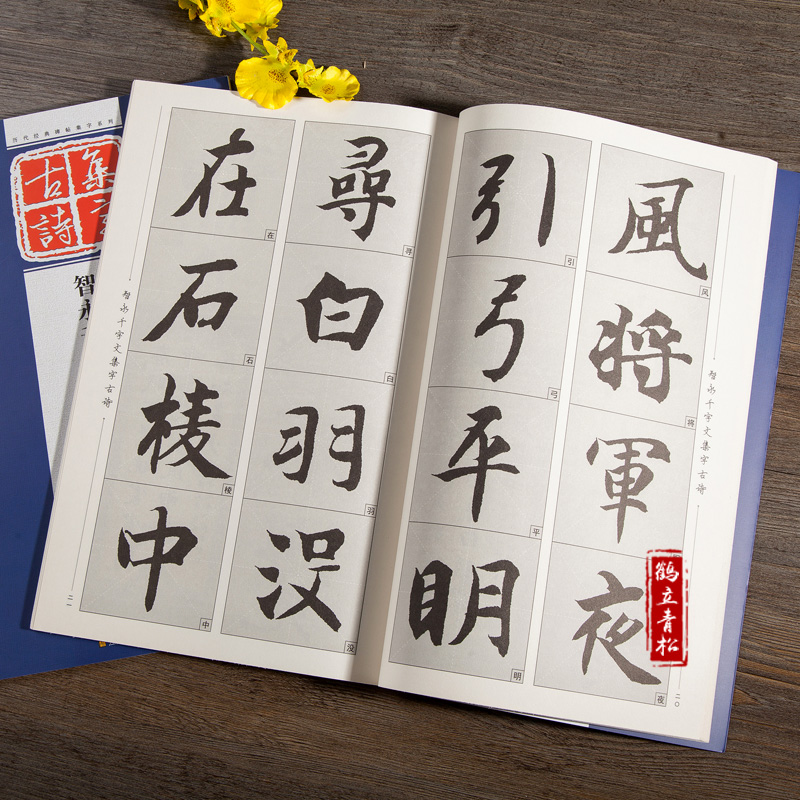 历代经典碑帖集字系列
集字
古詩
智永千
風將軍夜
风将军夜
引弓平明
引弓平明
尋白羽没
寻白羽没
在石棱中
在石棱中
智永千字文集字古诗
二〇
智永千字文集字古诗
二一
鹤立青松